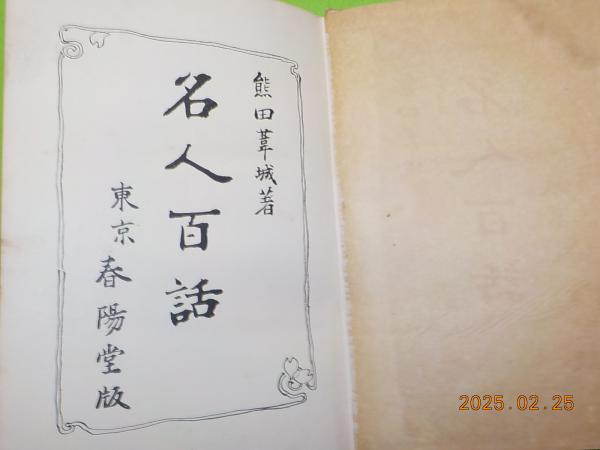 熊田葦城著
名人百話
東京 春陽堂版
2025.02.25